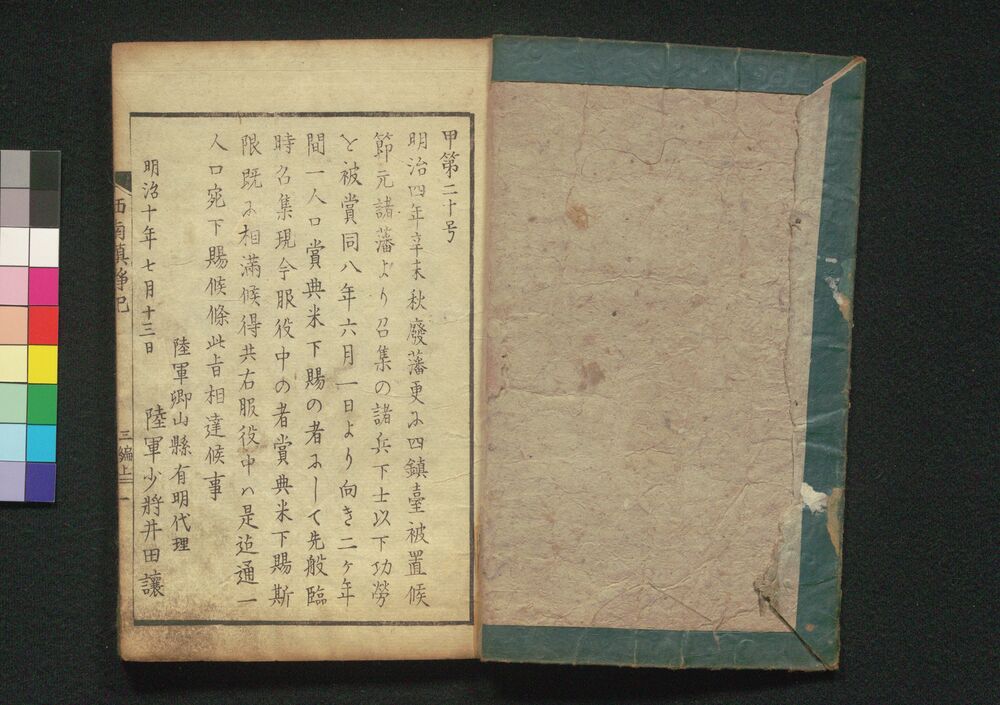 甲第二十号
明治四年辛未秋廢藩更に四鎮臺被置候
節元諸藩より召集の諸兵下士以下功勞
を被賞同八年六月一日より向き二ヶ年
間一人口賞典米下賜の者にして先般臨
時召集現今服役中の者賞典米下賜斯
限既に相滿候得共右服役中ハ是迠通一
人口宛下賜候條此旨相達候事
明治十年七月十三日
陸軍卿山縣有明代理
陸軍少將井田讓
西南鎮静記
三編上
一